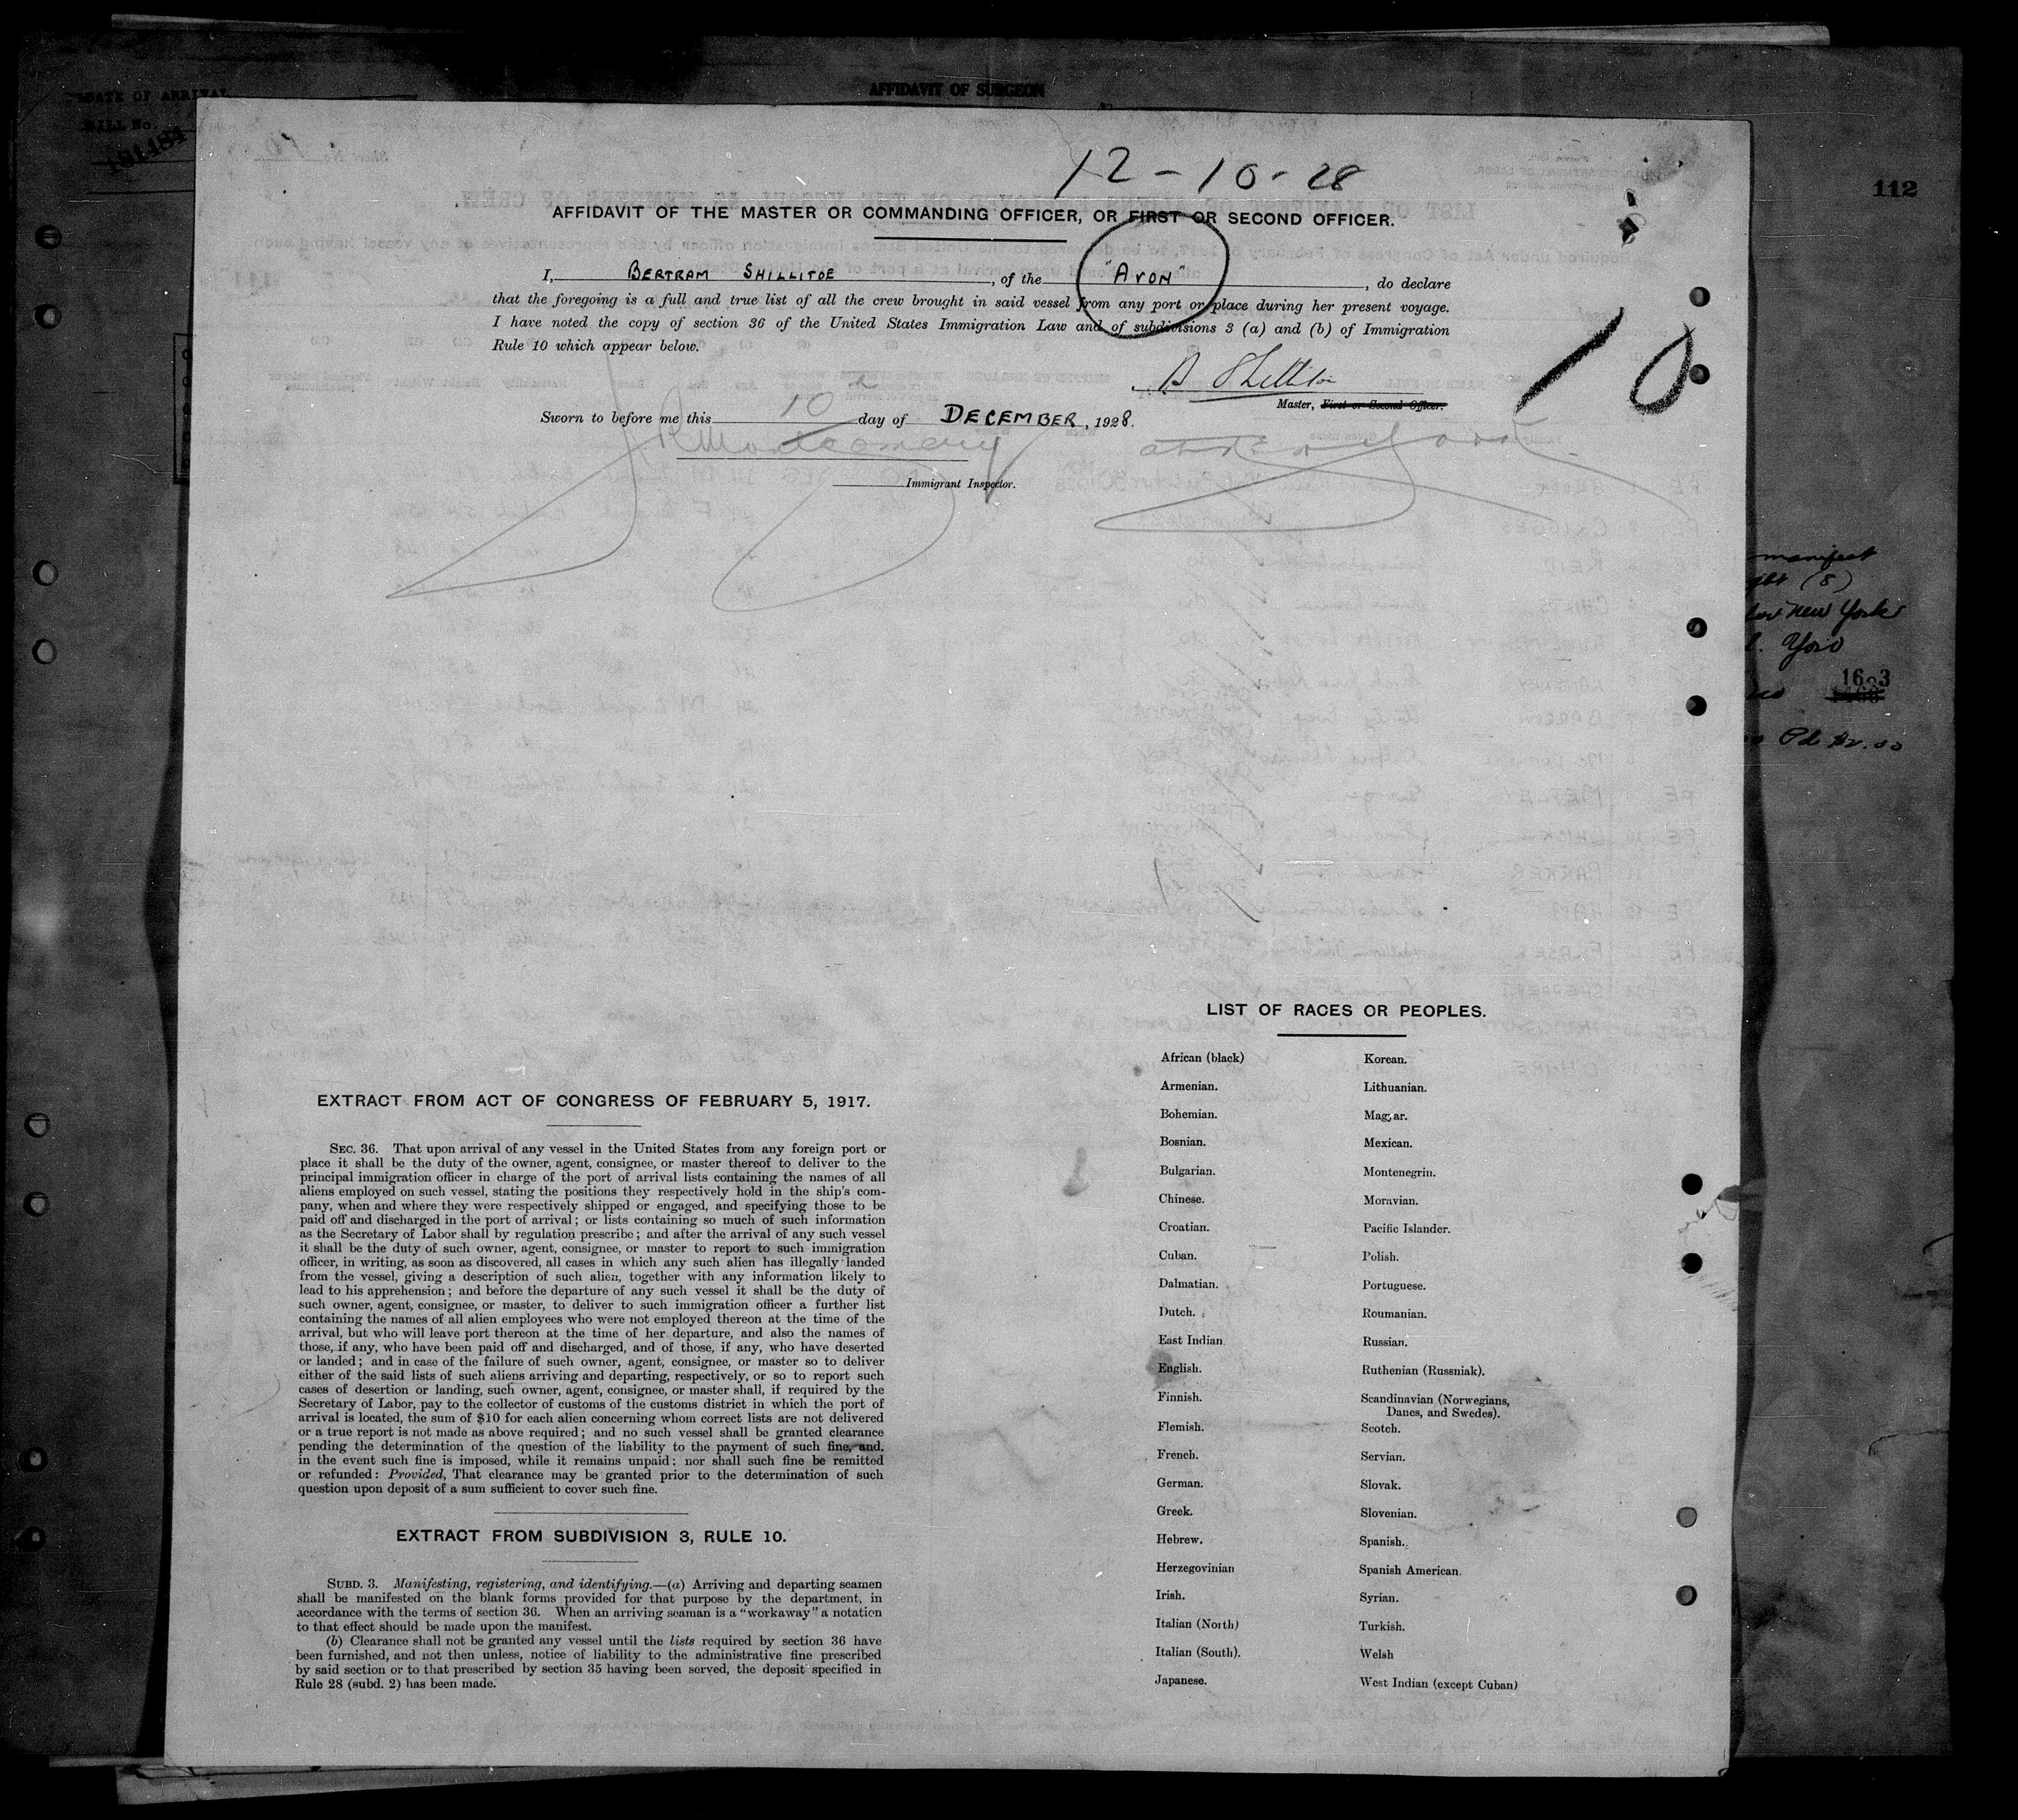 DATE OF ARRIVAL
BILL No.
181484
AFFIDAVIT OF SURGEON
112
12-10-28
AFFIDAVIT OF THE MASTER OR COMMANDING OFFICER, OR FIRST OR SECOND OFFICER.
I, BERTRAM SHILLITOE, of the "AVON", do declare
that the foregoing is a full and true list of all the crew brought in said vessel from any port or place during her present voyage.
I have noted the copy of section 36 of the United States Immigration Law and of subdivisions 3 (a) and (b) of Immigration
Rule 10 which appear below.
10
B Shillitoe
Master, First or Second Officer.
Sworn to before me this 10 day of DECEMBER, 1928.
Montgomery
Immigrant Inspector.
manifest
(8)
New York
16 3
LIST OF RACES OR PEOPLES.
African (black)
Armenian.
Bohemian.
Bosnian.
Bulgarian.
Chinese.
Croatian.
Cuban.
Dalmatian.
Dutch.
East Indian
English.
Finnish.
Flemish.
French.
German.
Greek.
Hebrew.
Herzegovinian
Irish.
Italian (North)
Italian (South).
Japanese.
Korean.
Lithuanian.
Magyar.
Mexican.
Montenegrin.
Moravian.
Pacific Islander.
Polish.
Portuguese.
Roumanian.
Russian.
Ruthenian (Russniak).
Scandinavian (Norwegians,
Danes, and Swedes).
Scotch.
Servian.
Slovak.
Slovenian.
Spanish.
Spanish American.
Syrian.
Turkish.
Welsh
West Indian (except Cuban)
EXTRACT FROM ACT OF CONGRESS OF FEBRUARY 5, 1917.
SEC. 36. That upon arrival of any vessel in the United States from any foreign port or
place it shall be the duty of the owner, agent, consignee, or master thereof to deliver to the
principal immigration officer in charge of the port of arrival lists containing the names of all
aliens employed on such vessel, stating the positions they respectively hold in the ship's com-
pany, when and where they were respectively shipped or engaged, and specifying those to be
paid off and discharged in the port of arrival; or lists containing so much of such information
as the Secretary of Labor shall by regulation prescribe; and after the arrival of any such vessel
it shall be the duty of such owner, agent, consignee, or master to report to such immigration
officer, in writing, as soon as discovered, all cases in which any such alien has illegally landed
from the vessel, giving a description of such alien, together with any information likely to
lead to his apprehension; and before the departure of any such vessel it shall be the duty of
such owner, agent, consignee, or master, to deliver to such immigration officer a further list
containing the names of all alien employees who were not employed thereon at the time of the
arrival, but who will leave port thereon at the time of her departure, and also the names of
those, if any, who have been paid off and discharged, and of those, if any, who have deserted
or landed; and in case of the failure of such owner, agent, consignee, or master so to deliver
either of the said lists of such aliens arriving and departing, respectively, or so to report such
cases of desertion or landing, such owner, agent, consignee, or master shall, if required by the
Secretary of Labor, pay to the collector of customs of the customs district in which the port of
arrival is located, the sum of $10 for each alien concerning whom correct lists are not delivered
or a true report is not made as above required; and no such vessel shall be granted clearance
pending the determination of the question of the liability to the payment of such fine, and,
in the event such fine is imposed, while it remains unpaid; nor shall such fine be remitted
or refunded: Provided, That clearance may be granted prior to the determination of such
question upon deposit of a sum sufficient to cover such fine.
EXTRACT FROM SUBDIVISION 3, RULE 10.
SUBD. 3. Manifesting, registering, and identifying.—(a) Arriving and departing seamen
shall be manifested on the blank forms provided for that purpose by the department, in
accordance with the terms of section 36. When an arriving seaman is a "workaway" a notation
to that effect should be made upon the manifest.
(b) Clearance shall not be granted any vessel until the lists required by section 36 have
been furnished, and not then unless, notice of liability to the administrative fine prescribed
by said section or to that prescribed by section 35 having been served, the deposit specified in
Rule 28 (subd. 2) has been made.